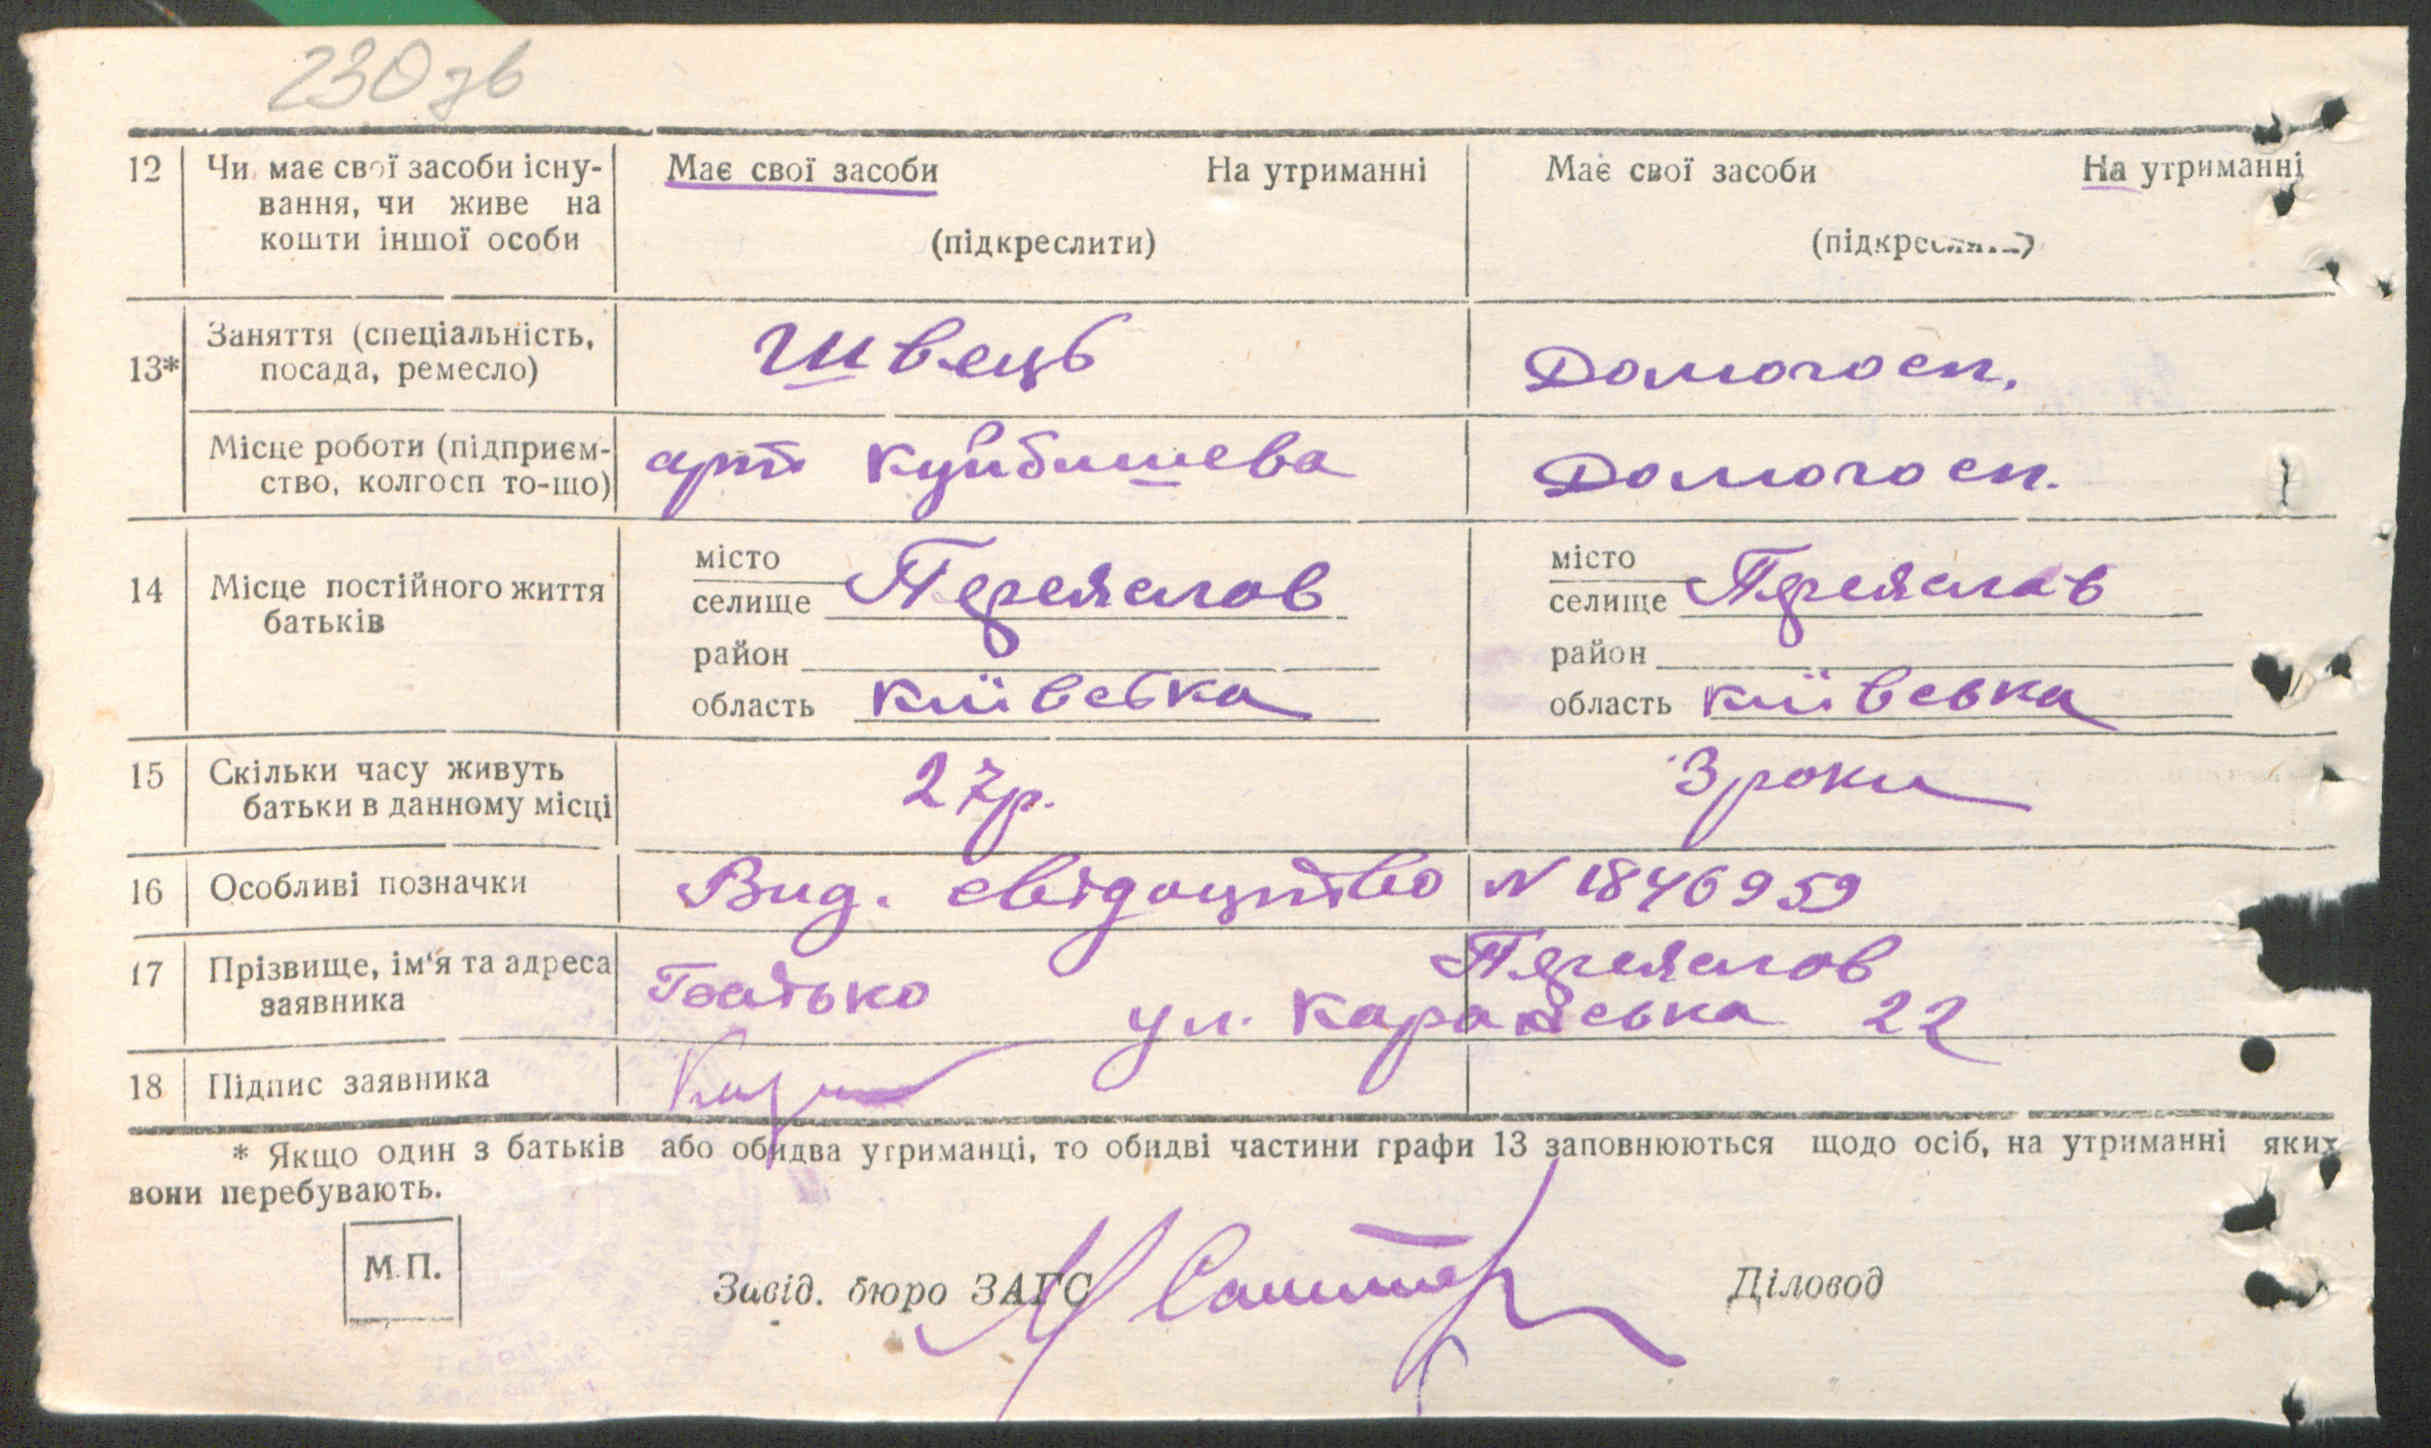 230 зв
12 Чи має свої засоби існу- Має свої засоби На утриманні Має свої засоби На утриманні
вання, чи живе на
кошти іншої особи (підкреслити) (підкреслити)
13* Заняття (спеціальність, Швець Домогосп.
посада, ремесло)
Місце роботи (підприєм- арт Куйбишева Домогосп.
ство, колгосп то-що)
14 Місце постійного життя батьків
місто селище Переяслов місто селище Переяслов
район район
область Київська область Київська
15 Скільки часу живуть 27 р. 3 роки
батьки в данному місці
16 Особливі позначки Вид. свідоцтво N 1846959
17 Прізвище, ім'я та адреса Батько Переяслов
заявника ул. 22
18 Підпис заявника
* Якщо один з батьків або обидва утриманці, то обидві частини графи 13 заповнюються щодо осіб, на утриманні яких
вони перебувають.
М.П.
Завід. бюро ЗАГС Діловод